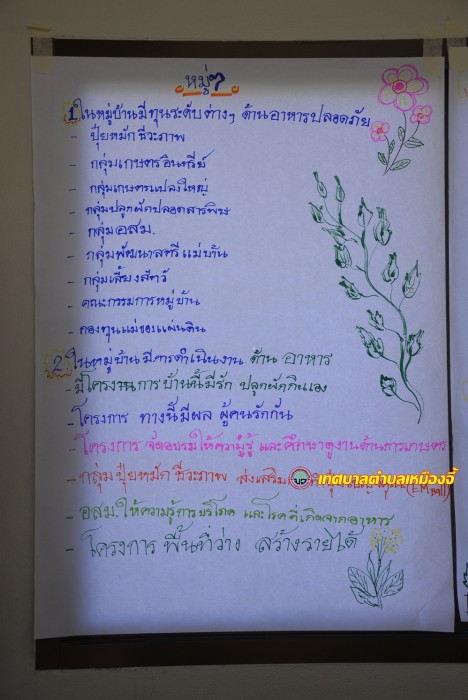 หมู่ 7
1. ในหมู่บ้านมีทุนระดับต่างๆ ด้านอาหารปลอดภัย
- ปุ๋ยหมักชีวะภาพ
- กลุ่มเกษตรอินทรีย์
- กลุ่มเกษตรแปลงใหญ่
- กลุ่มปลูกผักปลอดสารพิษ
- กลุ่ม อสม.
- กลุ่มพัฒนาสตรีแม่บ้าน
- กลุ่มเลี้ยงสัตว์
- คณะกรรมการหมู่บ้าน
- กองทุนแม่ของแผ่นดิน
2. ในหมู่บ้านมีการดำเนินงาน ด้าน อาหาร
- มีโครงการบ้านนี้มีรัก ปลูกผักกินเอง
- โครงการ ทางนี้มีผล ผู้คนรักกัน
- โครงการ จัดอบรมให้ความรู้ และศึกษาดูงานด้านการเกษตร
- กลุ่มปุ๋ยหมักชีวะภาพ ส่งเสริม (EM ball)
เทศบาลตำบลเหมืองจี้
- อสม. ให้ความรู้การบริโภค และโรคที่เกิดจากอาหาร
- โครงการ พื้นที่ว่าง สร้างรายได้